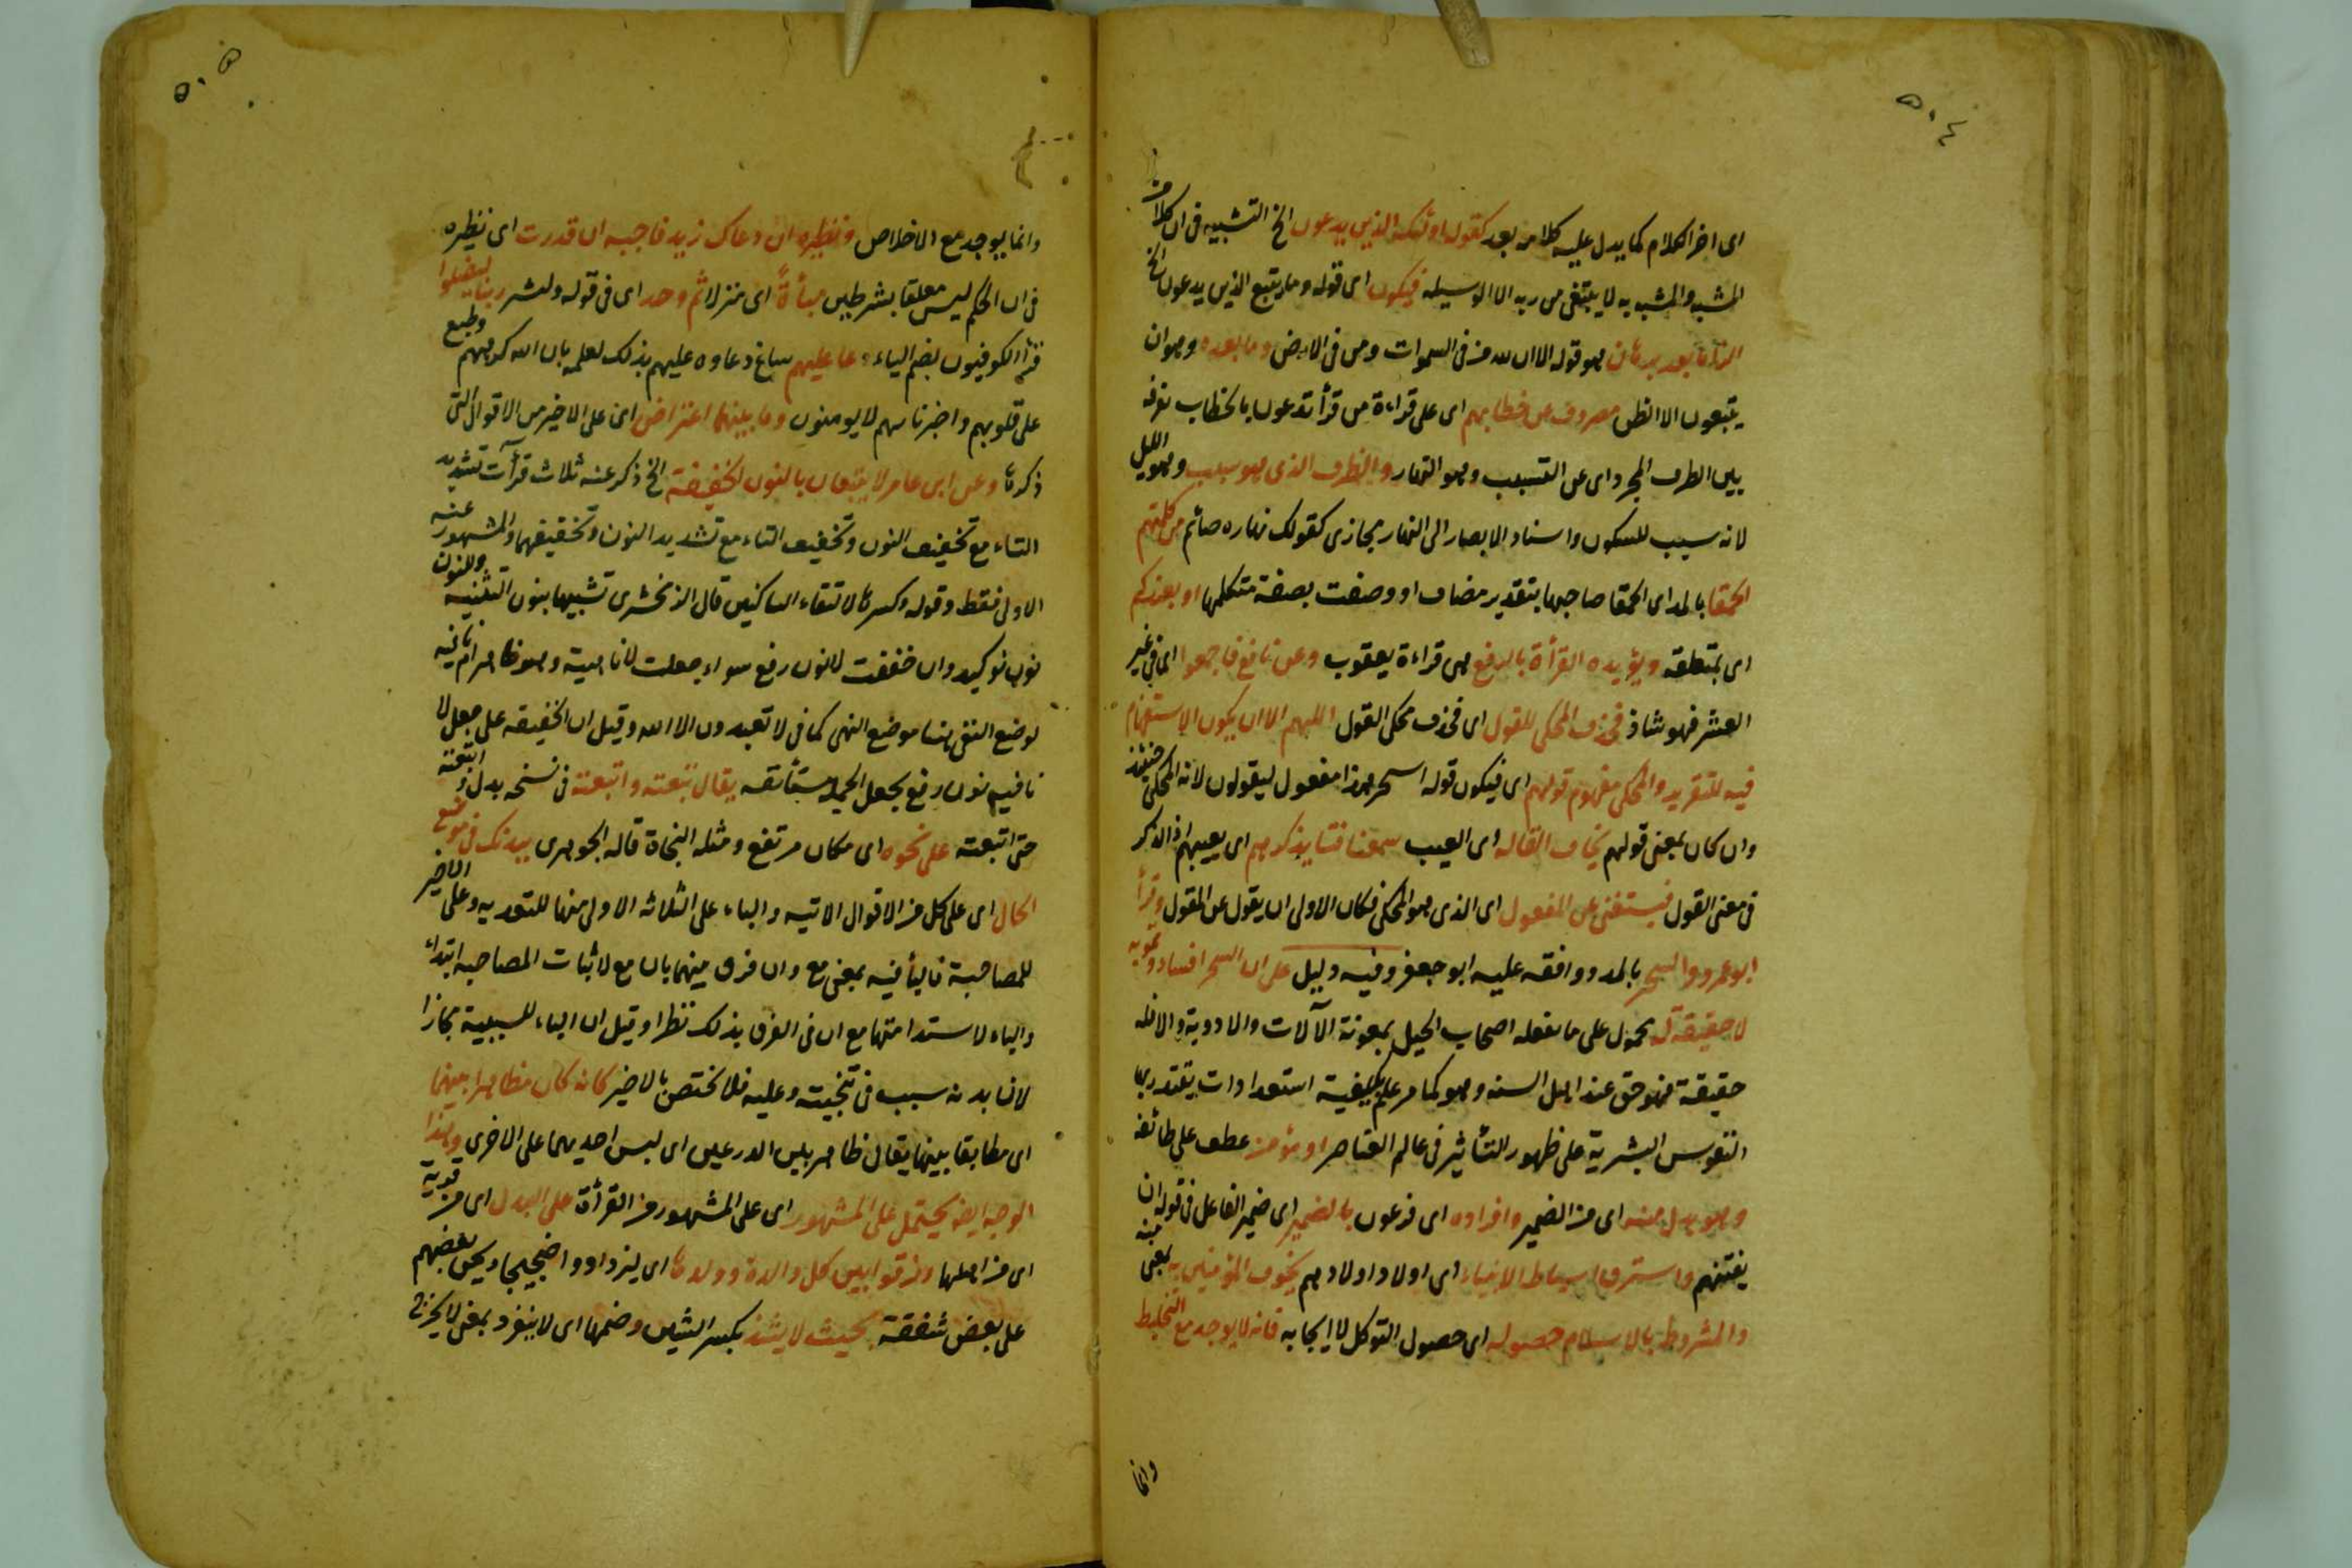 ٥٠٤
اى اخر الكلام كما يدل عليه كلامه بعد كقوله اولئك الذين يدعون الخ التشبيه فى ان كلا من
المشبه والمشبه به لا يبتغى من ربه الا الوسيله فيكون اى قوله وما يتبع الذين يدعون الخ
بعد برهان هو قوله الا ان لله من فى السموات ومن فى الارض وما بعده وهو ان
يتبعون الا الظن مصروف عن خطابهم اى على قراءة من قرأ تدعون بالخطاب تفرقه
بين الظرف المجرد اى عن التسبب وهو النهار والظرف الذى هو سبب وهو الليل
لانه سبب للسكون واسناد الابصار الى النهار مجازى كقولك نهاره صائم من كلمتهم
الحمقا بالمد اى الحمقا صاحبها بتقدير مضاف او وصفت بصفة متكلمها او بعزكم
اى بمتعلقه ويؤيده القرأة بالرفع هى قراءة يعقوب وعن نافع فاجمعوا اما فى غير
العشر فهو شاذ فحذف المحكى للقول اى فحذف محكى القول اللهم الا ان يكون الاستفهام
فيه للتقرير والمحكى مفهوم قولهم اى فيكون قوله اسحر هذا مفعول ليقولون لانه المحكى حينئذ
وان كان بمعنى قولهم يخاف القاله اى العيب سمعنا فتا يذكرهم اى يعيبهم اذ الذكر
فى معنى القول فيستغنى عن المفعول اى الذى هو المحكى فكان الاولى ان يقول عن المقول وقرأ
ابو عمرو والسحر بالمد ووافقه عليه ابو جعفر وفيه دليل على ان السحر افساد وتمويه
لا حقيقة له محمول على ما يفعله اصحاب الحيل بمعونة الآلات والادوية والا فله
حقيقة فهو حق عند اهل السنه وهو كما مر علم بكيفية استعدادات يقتدر بها
النفوس البشرية على ظهور التأثير فى عالم العناصر او مؤمن عطف على طائفه
وهو بدل منه اى من الضمير وافراده اى فرعون بالضمير اى ضمير الفاعل فى قوله ان
يفتنهم واسترق اسباط الانبياء اى اولاد اولادهم بخوف المؤمنين به بمعنى منه
والمشروط بالاسلام حصوله اى حصول التوكل لا ايجابه فانه لا يوجد مع التخليط
وانما
٥٠٥
وانما يوجد مع الاخلاص ونظيره ان دعاك زيد فاجبه ان قدرت اى نظيره
فى ان الحكم ليس معلقا بشرطين مبأة اى منزلا ثم وحد اى فى قوله وبشر ربنا ليضلوا
قرأ الكوفيون بضم الياء دعا عليهم ساغ دعاوه عليهم بذلك لعلمه بان الله كرههم وطبع
على قلوبهم واخبرنا بهم لا يومنون وما بينهما اعتراض اى على الاخير من الاقوال التى
ذكرها وعن ابن عامر لا يتبعان بالنون الخفيفة الخ ذكر عنه ثلاث قرآت تشديد
التاء مع تخفيف النون وتخفيف التاء مع تشديد النون وتخفيفهما والمشهور عنه
الاولى فقط وقوله وكسرها لالتقاء الساكنين قال الزمخشرى تشبيها بنون التثنيه والنون
نون توكيد وان خففت لا نون رفع سواء جعلت لا ناهية وهو ظاهر ام نافيه
لوضع النفى هنا موضع النهى كما فى لا تعبدون الا الله وقيل ان الخفيفه على جعل لا
نافيه نون رفع بجعل الجملة مستأنفه يقال تبعته واتبعته فى نسخه بدل واتبعته
حتى اتبعته على نحوه اى مكان مرتفع ومثله النجاة قاله الجوهرى ببدنك فى موضع
الحال اى على كل من الاقوال الاتيه والباء على الثلاثه الاولى منها للتعديه وعلى الاخير
للمصاحبة فالبأ فيه بمعنى مع وان فرق بينهما بان مع لاثبات المصاحبه ابتداء
والباء لاستدامتها مع ان فى الفرق بذلك نظرا وقيل ان الباء للسببية مجازا
لان بدنه سبب فى تنجيته وعليه فلا يختص بالاخير كانه كان مظاهرا بينهما
اى مطابقا بينهما يقال ظاهر بين الدرعين اى لبس احديهما على الاخرى وهذا
الوجه ايضا يحتمل على المشهور اى على المشهور من القرأة على البدل اى من قرية
اى من اهلها وفرقوا بين كل والدة وولدها اى ليزدادوا ضجيجا ويحن بعضهم
على بعض شفقة بحيث لا يشذ بكسر الشين وضمها اى لا ينفرد بمعنى لا يخرج